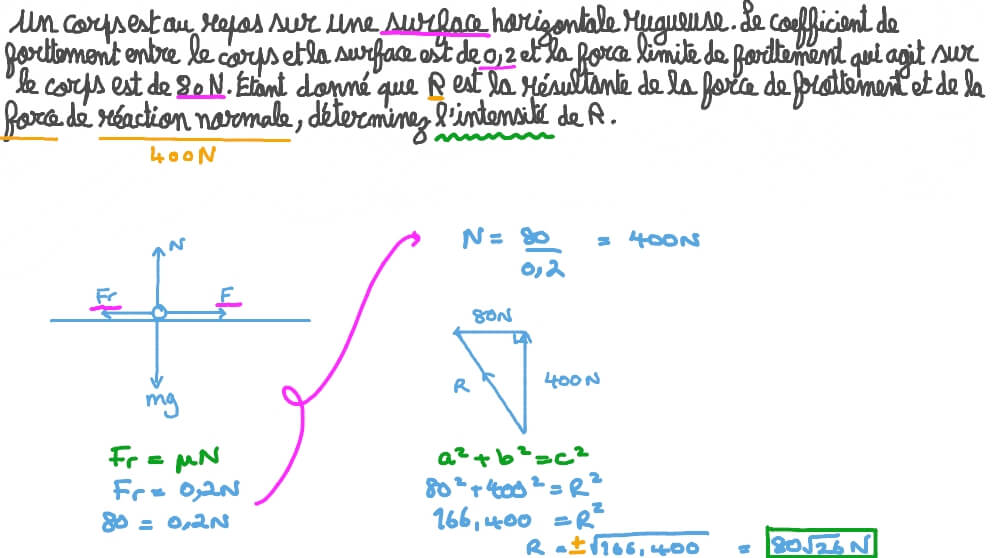 Un corps est au repos sur une surface horizontale rugueuse. Le coefficient de
frottement entre le corps et la surface est de 0,2 et la force limite de frottement qui agit sur
le corps est de 80N. Étant donné que R est la résultante de la force de frottement et de la
force de réaction normale, déterminez l'intensité de R.
400N
N = 80/0,2 = 400N
N
Fr F
mg
80N
R 400N
Fr = μN
Fr = 0,2N
80 = 0,2N
a² + b² = c²
80² + 400² = R²
166,400 = R²
R = ±√166,400 = 80√26 N